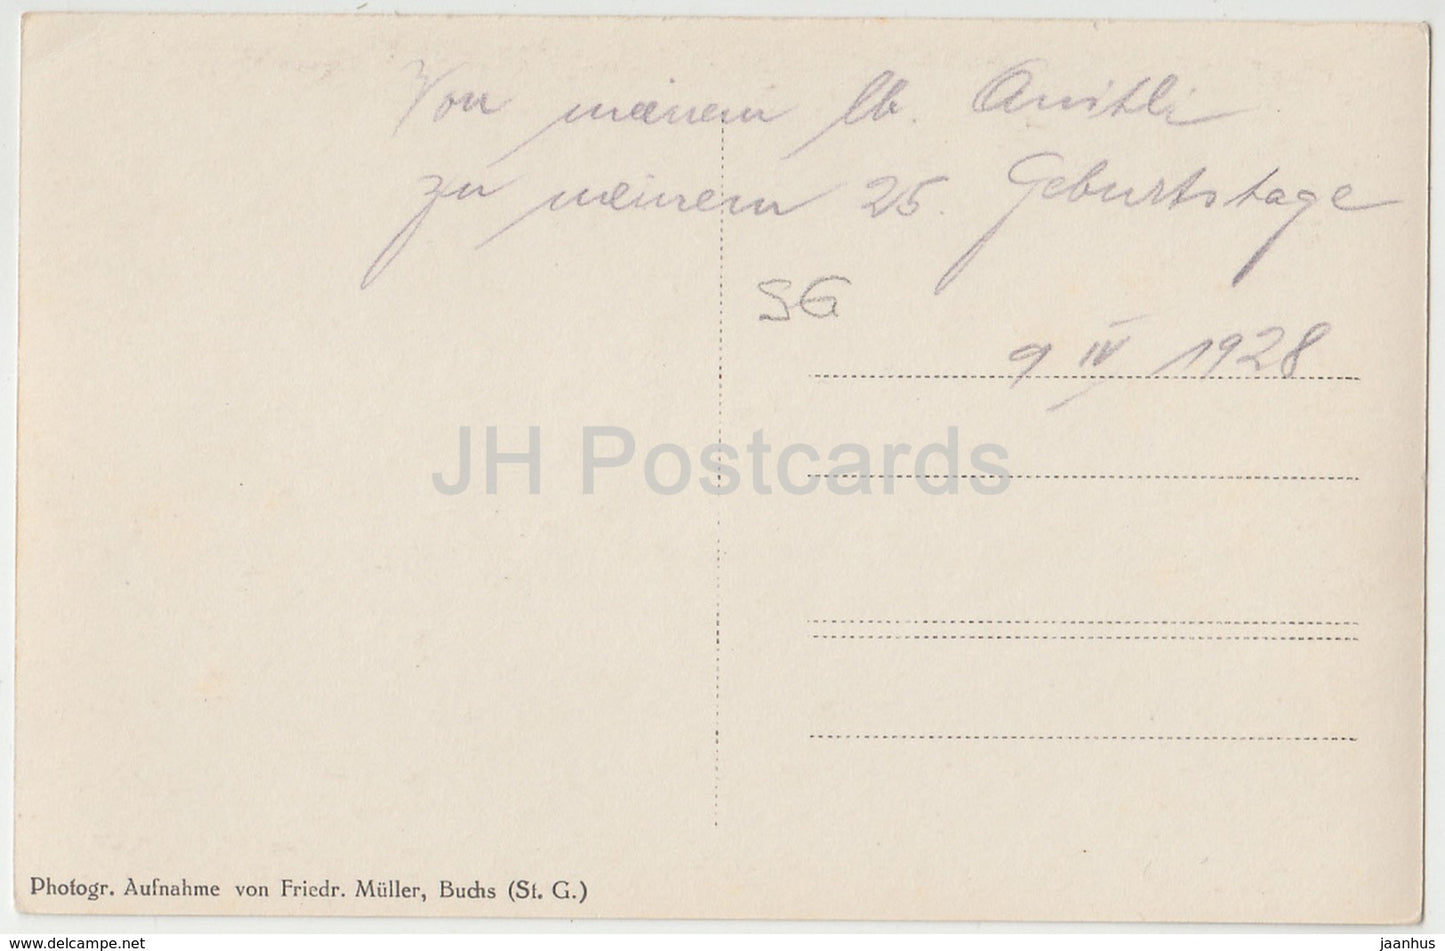 Von meinem lb.
zu meinem 25. Geburtstage
SG
9 IV 1928
JH Postcards
Photogr. Aufnahme von Friedr. Müller, Buchs (St. G.)
www.delcampe.net
jaanhus